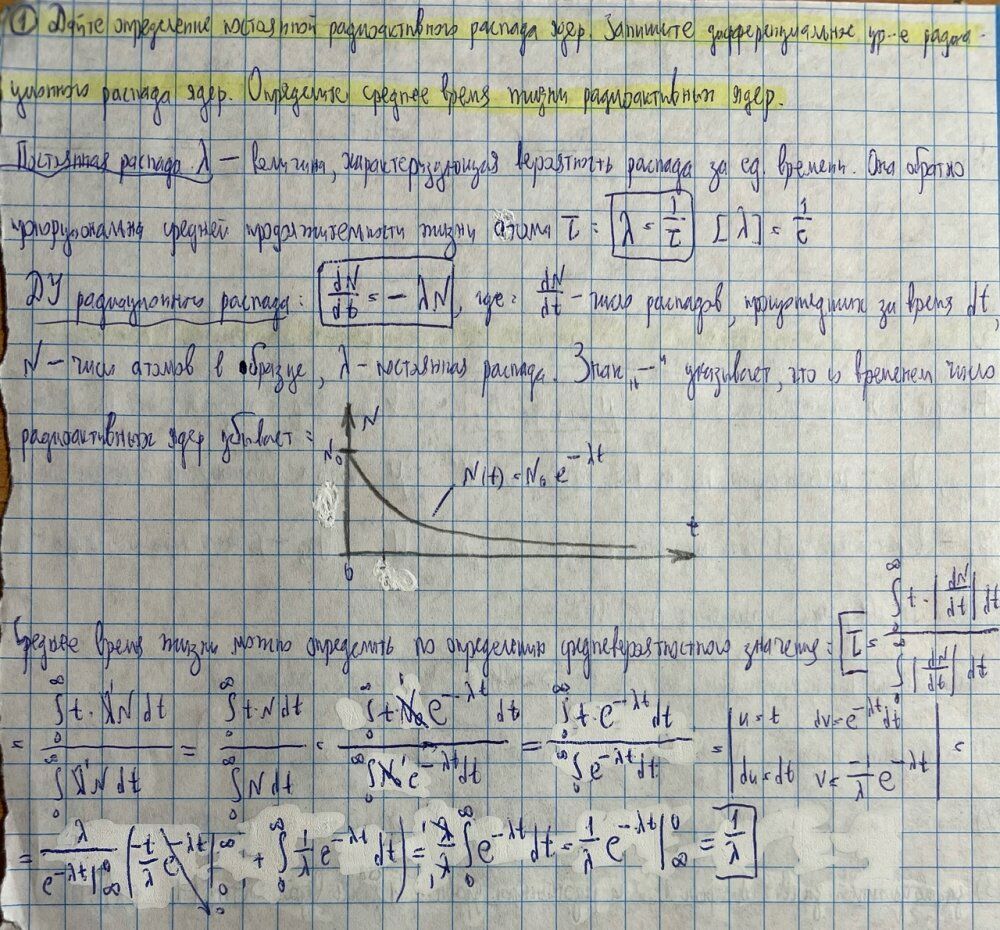 ① Дайте определение постоянной радиоактивного распада ядер. Запишите дифференциальное ур-е радиа-
ционного распада ядер. Определите среднее время жизни радиоактивных ядер.
Постоянная распада λ – величина, характеризующая вероятность распада за ед. времени. Она обратно
пропорциональна средней продолжительности жизни атома τ: λ = 1/τ [λ] = 1/с
ДУ радиационного распада: dN/dt = - λN, где: dN/dt – число распадов, произошедших за время dt,
N – число атомов в образце, λ – постоянная распада. Знак „–" указывает, что со временем число
радиоактивных ядер убывает:
N
N₀
N(t) = N₀ e^{-λt}
t
0
Среднее время жизни можно определить по определению средневероятностного значения: τ = ∫₀^∞ t·|dN/dt| dt / ∫₀^∞ |dN/dt| dt
= ∫₀^∞ t·λN dt / ∫₀^∞ λN dt = ∫₀^∞ t·N dt / ∫₀^∞ N dt = ∫₀^∞ t·N₀ e^{-λt} dt / ∫₀^∞ N₀ e^{-λt} dt = ∫₀^∞ t·e^{-λt} dt / ∫₀^∞ e^{-λt} dt = | u = t dv = e^{-λt} dt du = dt v = -1/λ e^{-λt} | =
= λ / e^{-λt}|_∞^0 ( -t/λ e^{-λt}|_0^∞ + ∫₀^∞ 1/λ e^{-λt} dt ) = λ/λ ∫₀^∞ e^{-λt} dt = 1/λ e^{-λt}|_∞^0 = 1/λ